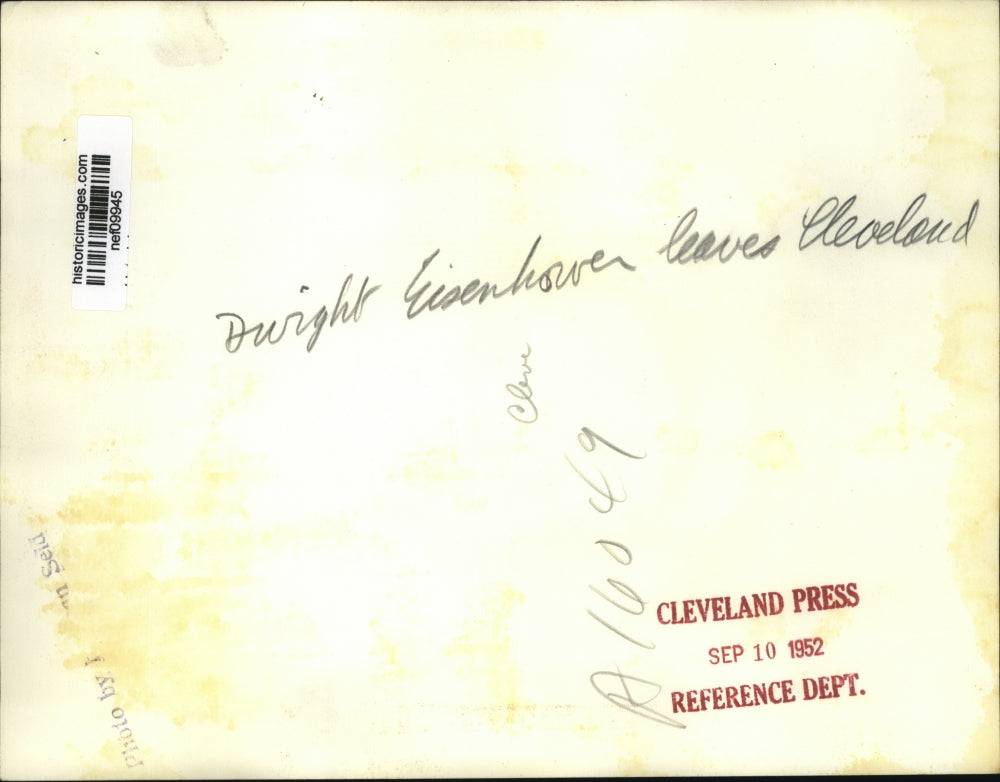 historicimages.com
nef09945
Dwight Eisenhower leaves Cleveland
Cleve
A 16049
CLEVELAND PRESS
SEP 10 1952
REFERENCE DEPT.
Photo by